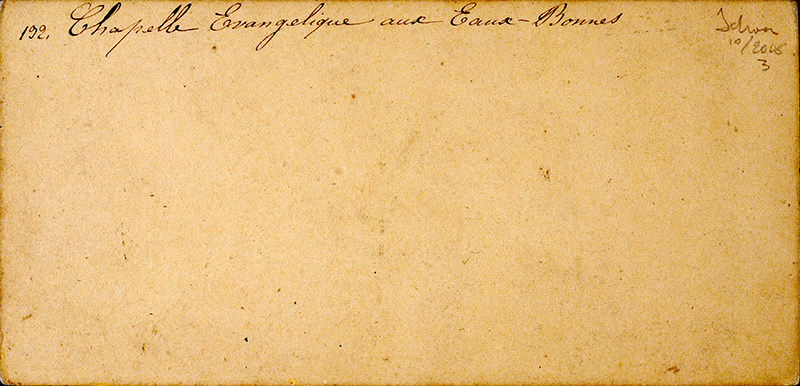 192. Chapelle Evangelique aux Eaux-Bonnes
10/2005
3